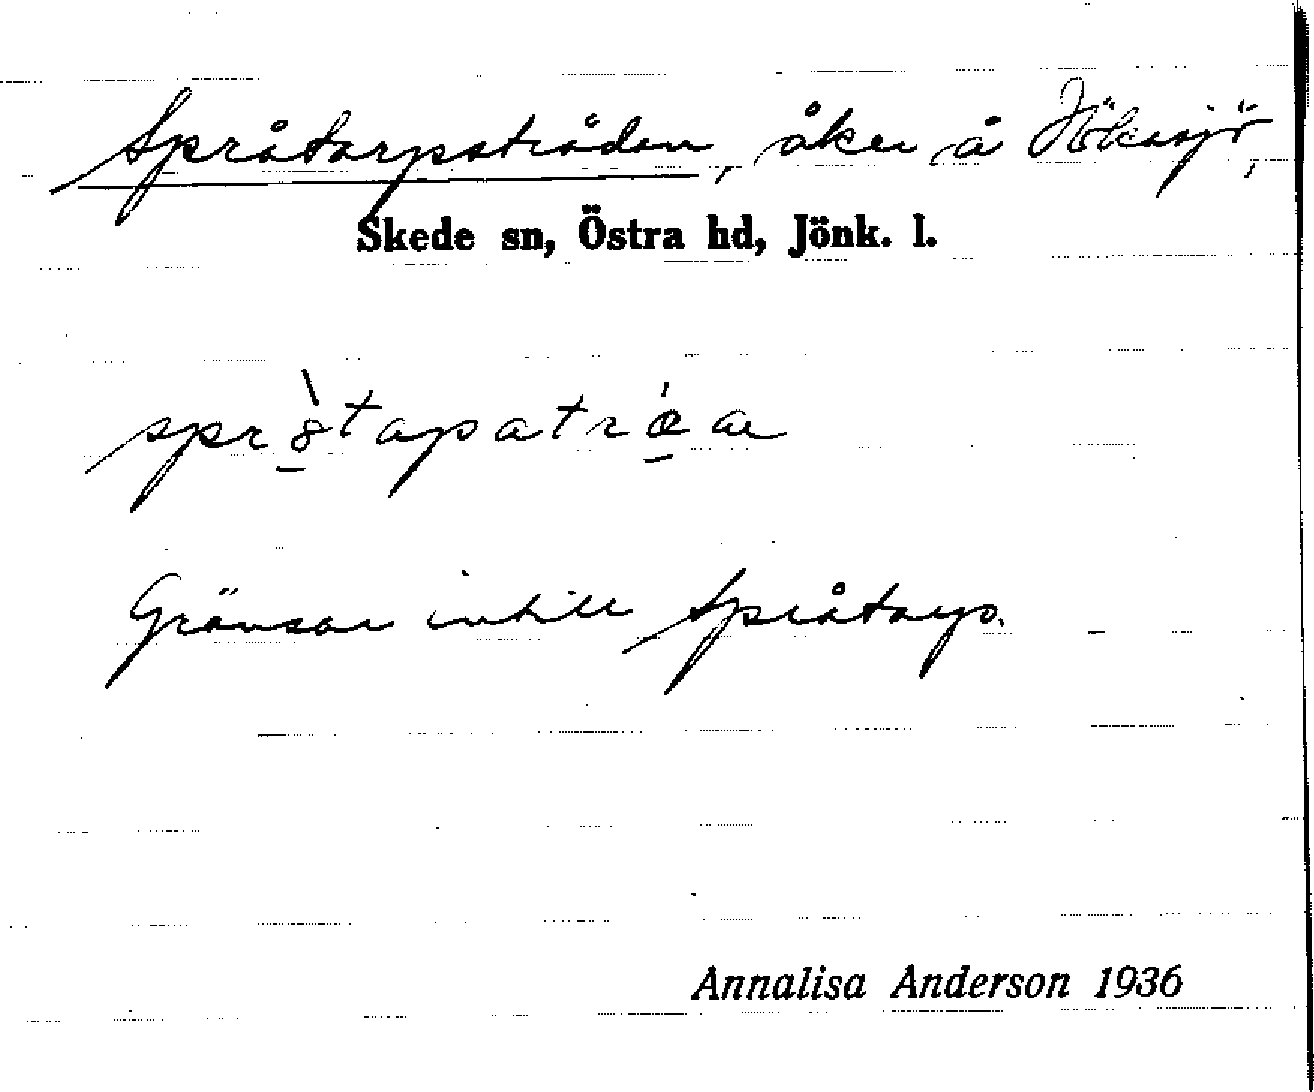 Språtarpsträden, åker å Hökasjö,
Skede sn, Östra hd, Jönk. l.
Gränsar intill Språtarp.
Annalisa Anderson 1936